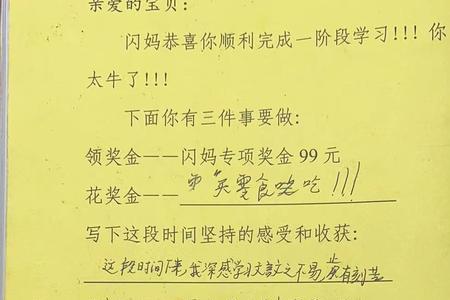 亲爱的宝贝:
闪妈恭喜你顺利完成一阶段学习!!!你
太牛了!!!
下面你有三件事要做:
领奖金——闪妈专项奖金 99 元
花奖金——买零食吃!!!
写下这段时间坚持的感受和收获:
这段时间下来,我深感学习文言文之不易,有刻苦